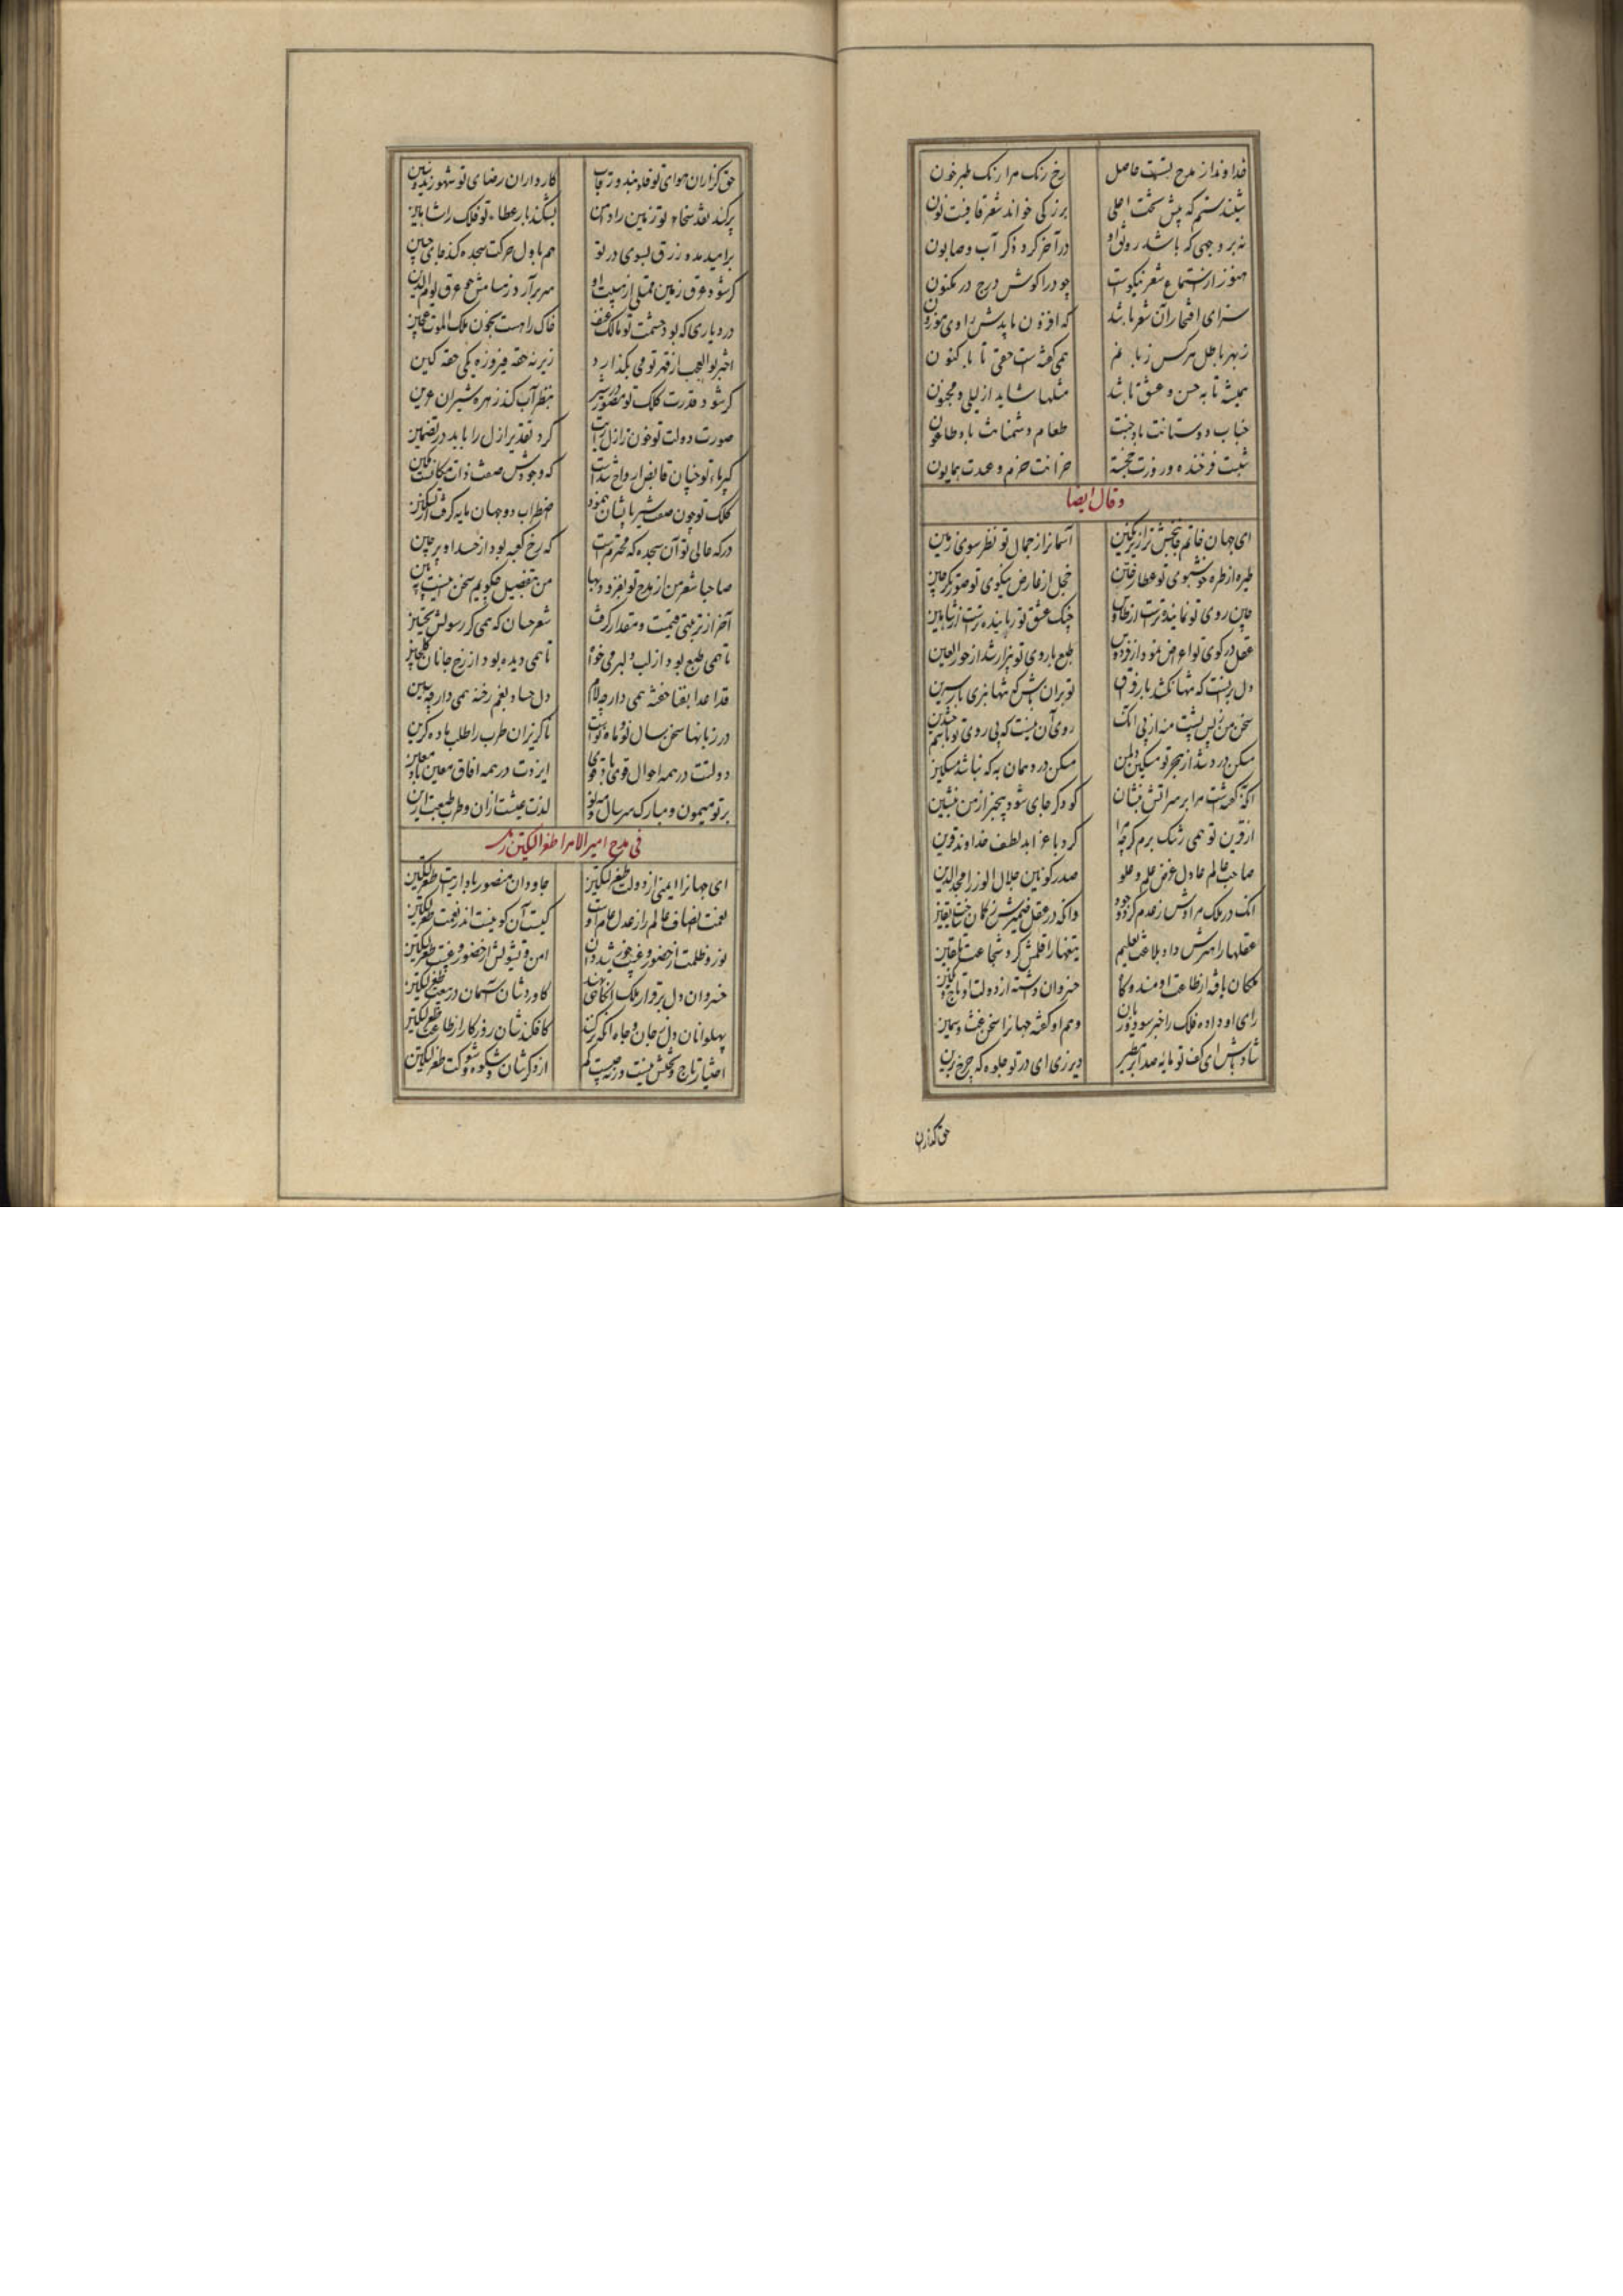 خداوندا ز مدح تست حاصل رخ رنک مرا رنک طبرخون
شنیدستم که پیش تخت اعلی بزرکی خواند شعر قافیت نون
نه بر وجهی که باشد رونق او در آخر کرد ذکر آب و صابون
هنوز از استماع شعر نیکوست چو درا کوش درج در مکنون
سزای افتخار آن شعر باشد که افزون بایدش راوی موزون
ز بهر باطل هرکس زبانم همی کفته ست حقی تا باکنون
همیشه تا به حسن و عشق باشد مثلها شاید از لیلی و مجنون
جناب دوستانت باد جنت طعام دشمنانت باد طاعون
شبت فرخنده و روزت خجسته خزانت خرم و عیدت همایون
وقال ایضا
ای جهان خاتم جانبخش ترا زیر نکین آسمانرا ز جمال تو نظر سوی زمین
طیره از طره خوشبوی تو عطار ختن خجل از عارض نیکوی تو صورتکر چین
جان روی تو نماینده ترست از طاوس چنک عشق تو رباینده ترست از شاهین
عقل در کوی تو اعراض نمود از فردوس طبع با روی تو بیزار شد از حورالعین
دل برینست که تنها نکشد بار فراق تو بران باش که تنها نبری بار سرین
سخن من ز پس پشت منه از پی آنک روی آن نیست که بی روی تو باشم چندین
مسکن درد شد از هجر تو مسکین دل من مسکن درد همان به که نباشد مسکین
آنکه کفتست مرا بر سر آتش بنشان کو دکر جای شو و بیخبر از من بنشین
از قرین تو همی رشک برم کرچه مرا کرد با عز ابد لطف خداوند قرین
صاحب عالم عادل غرض علم و علو صدر کونین جلال الوزرا مجدالدین
آنک در ملک مرادش ز عدم کرد وجود وآنکه در عقل ضمیرش ز کمان ساخت یقین
عقلها را هنرش داده بلاغت تعلیم تیغها را قلمش کرد شجاعت تلقین
ملکان یافته از طاعت او مسند و کاه خسروان داشته از دولت او تاج و نکین
رای او داده فلک را خبر سود و زیان وهم او کفته جهانرا سخن غث و سمین
شادباش ای کف تو مایه صد ابر مطیر دیر زی ای در تو جلوه که چرخ برین
حق کذاران
حق کزاران هوای تو خداوند رقاب کارداران رضای تو شهور و سنین
پر کند نقد سخاء تو زمین را دامن بشکند بار عطاء تو فلک را شاهین
بر امید مدد رزق بسوی در تو هم باول حرکت سجده کند جای جنین
کر شود عرق زمین ممتلی از هیبت او سر برآرد ز مسامش خوی عرق یوم الدین
در دیاری که بود حشمت تو مالک عنف خاک را هست بخون ملک الموت عجین
اختر بوالعجب از قهر تو می بکذارد زیر نه حقه فیروزه یکی حقه کین
کر شود قدرت کلک تو مصور در شیر بنظر آب کند زهره شیران عرین
صورت دولت تو چون ز ازل راست کرد تقدیر ازل را باید در تضمین
کبریاء تو چنان قابض ارواح شدست که وجودش صفت ذات مکانست مکین
کلک تو چون صفت شیر نیستان بنمود اضطراب دو جهان مایه کرفت از تسکین
درکه عالی تو آن سجده که محترمست که رخ کعبه بود از حسد او پر چین
صاحبا شعر من از مدح تو بفزود بها من بتفصیل چکویم سخن اینست ببین
آخر از تربتی قیمت و مقدار کرفت شعر حسان که همی کرد رسولش تحسین
تا همی طبع بود از لب دلبر می خواه تا همی دیده بود از رخ جانان کل چین
قد اعدا بقفا خفته همی دار چو لام دل حساد بغم رخنه همی دار چو سین
در زبانها سخن سال نو و ماه نوست ناکزیران طرب را طلب باده کزین
دولتت در همه احوال قوی باد قوی ایزدت در همه آفاق معین باد معین
بر تو میمون و مبارک سر سال و مه نو لذت عیشت ازان و طرب طبعت ازین
فی مدح امیر الامرا طغرلتکین
ای جهانرا ایمنی از دولت طغرلتکین جاودان منصور بادا رایت طغرلتکین
نعمت انصاف عالم را ز عدل عام اوست کیست آن کو نیست اندر نعمت طغرلتکین
نور و ظلمت از حضور و غیبت خورشید دان امن و تشویش از حضور و غیبت طغرلتکین
خسروان دل بر قرار ملک آنکاهی نهند کاوردشان آسمان در بیعت طغرلتکین
پهلوانان دل ز جان و جاه آنکه برکنند کافکندشان روزکار از طاعت طغرلتکین
اختیار تاج و تختش نیست ورنه چیست کم از دکر شاهان شکوه و شوکت طغرلتکین